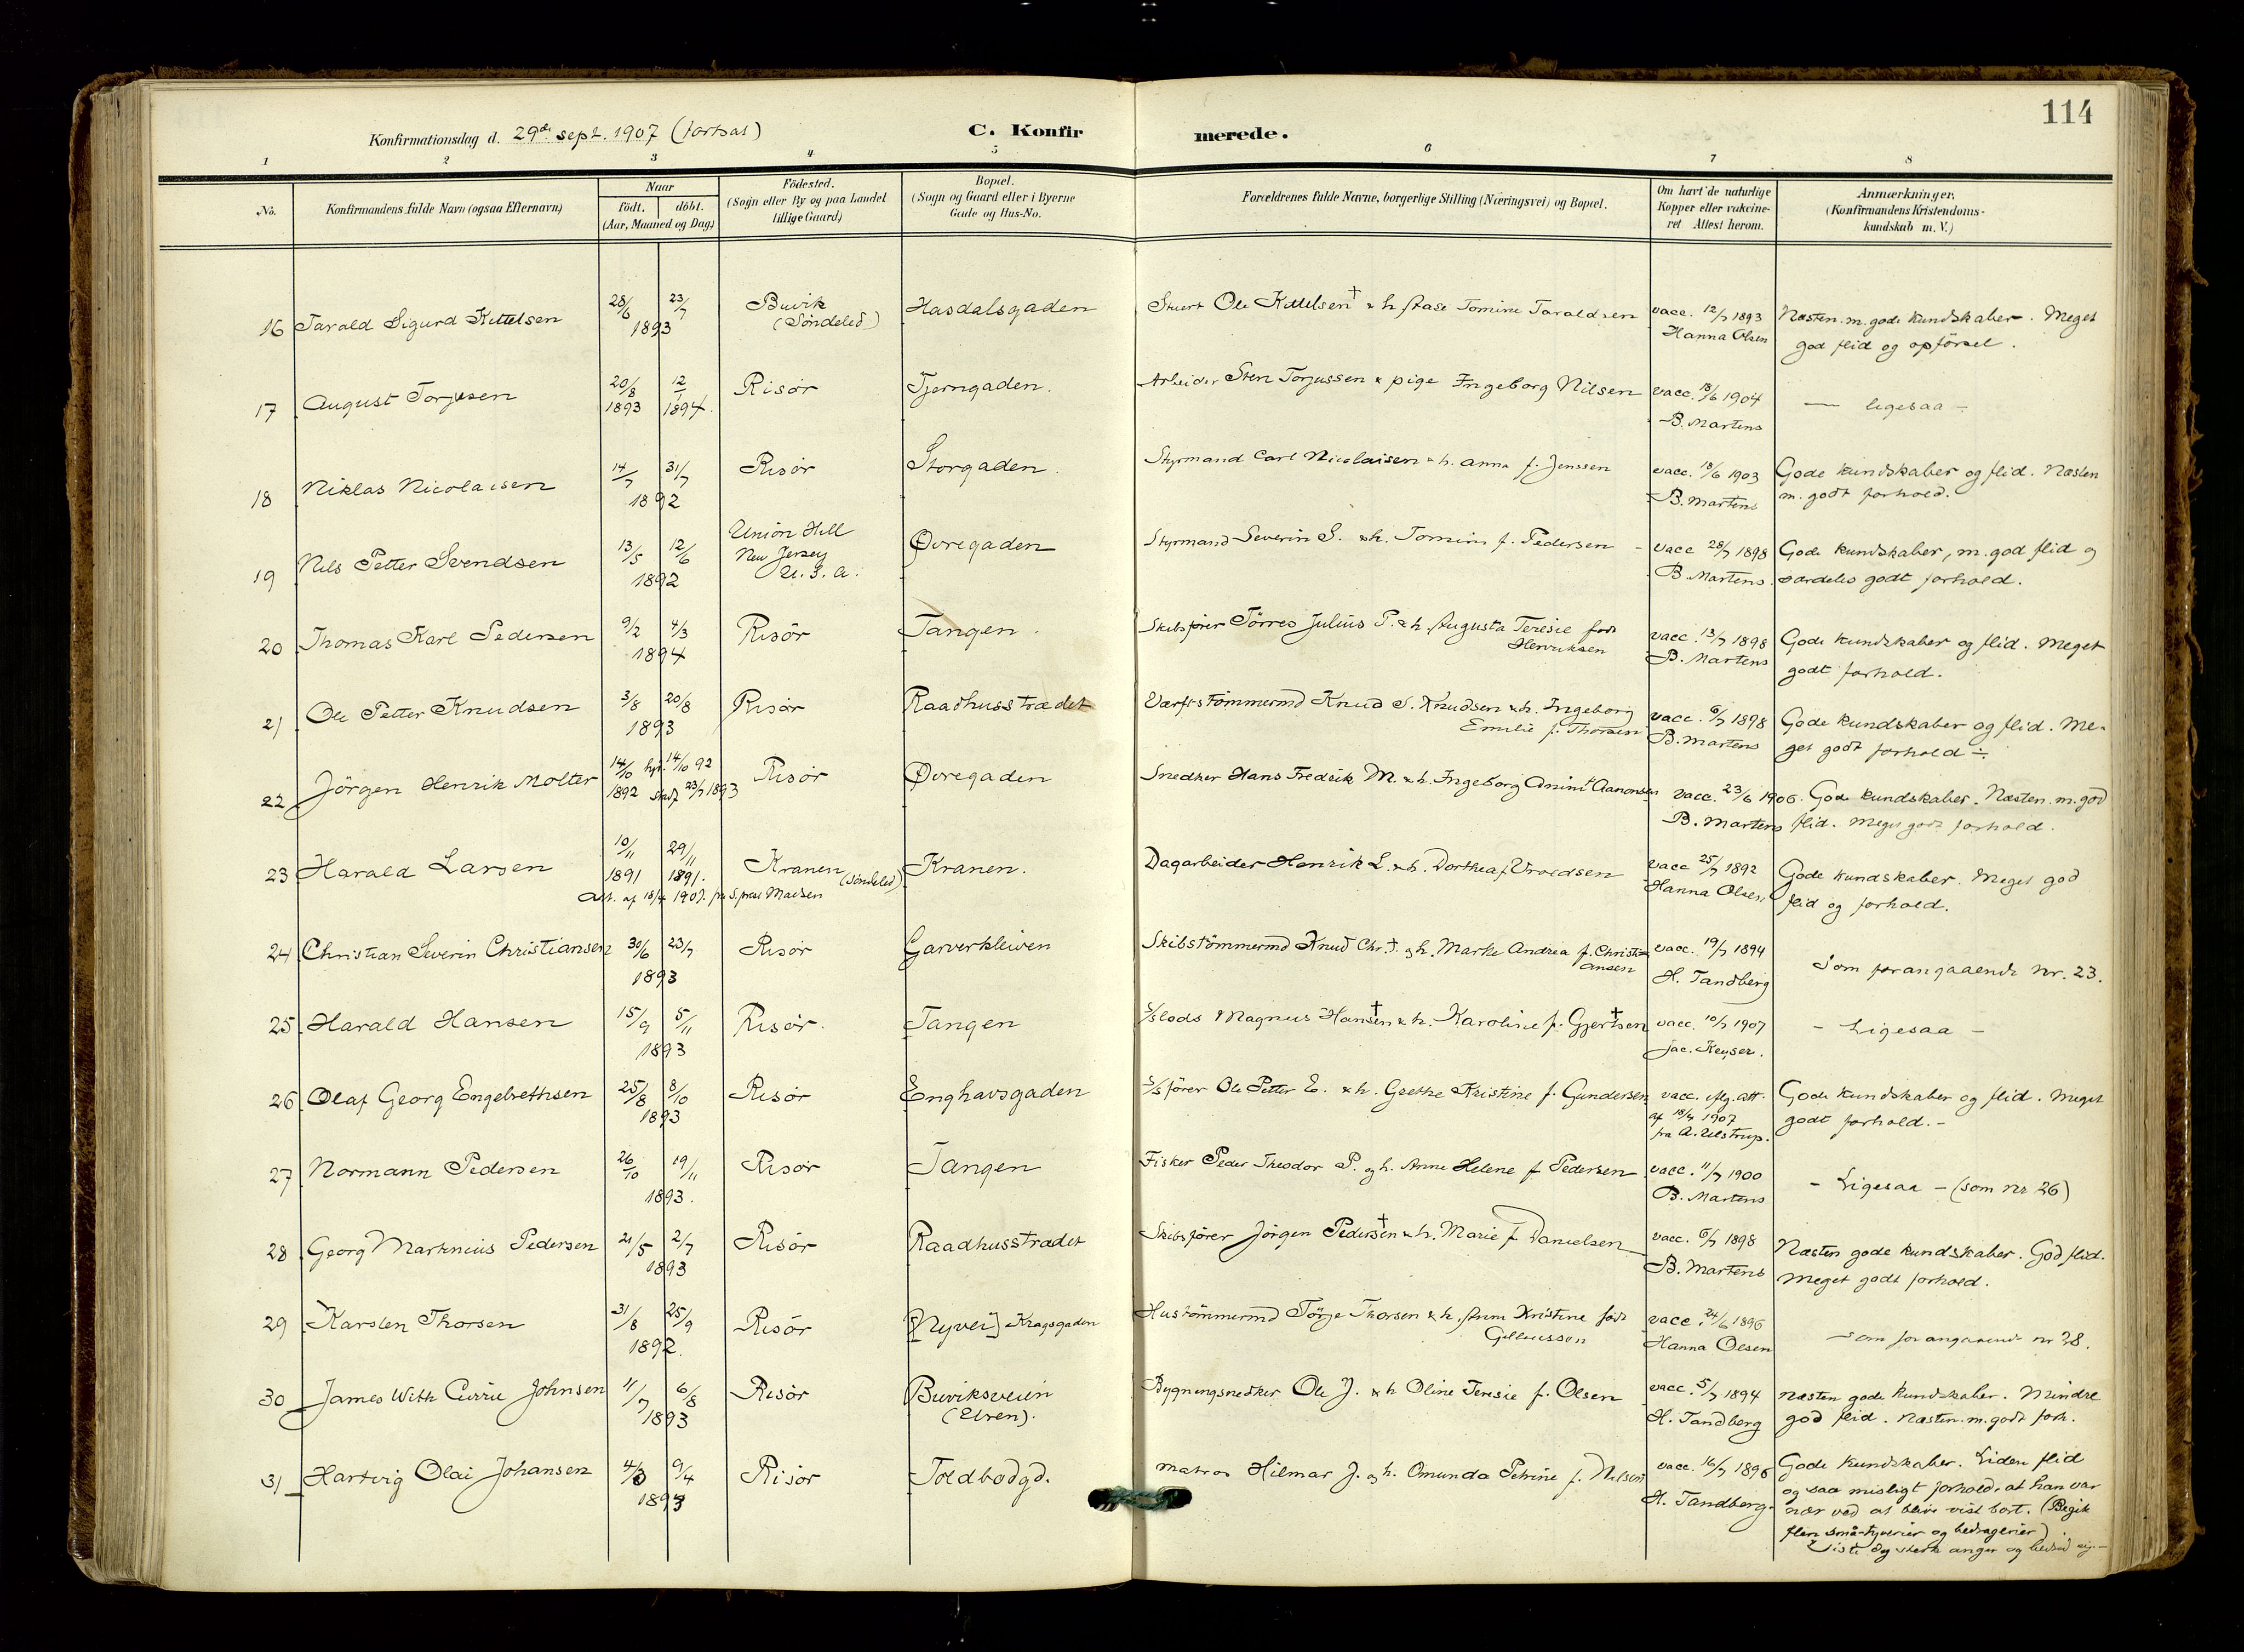 114
Konfirmationsdag d. 29de sept. 1907 (fortsat)
C. Konfirmerede.
1 2 3 4 5 6 7 8
No.
Konfirmandens fulde Navn (ogsaa Efternavn)
Naar
født. døbt.
(Aar, Maaned og Dag)
Fødested.
(Sogn eller By og paa Landet
tillige Gaard)
Bopæl.
(Sogn og Gaard eller i Byerne
Gade og Hus-No.
Forældrenes fulde Navne, borgerlige Stilling (Næringsvei) og Bopæl.
Om havt de naturlige
Kopper eller vakcine-
ret Attest herom.
Anmærkninger,
(Konfirmandens Kristendoms-
kundskab m. V.)
16 Tarald Sigurd Kittelsen 28/6 23/7 1893 Buvik (Søndeled) Hasdalsgaden Stuert Ole Kittelsen † & h. Aase Tomine Taraldsen vacc. 12/7 1893 Hanna Olsen Næsten m. gode kundskaber. Meget
god flid og opførsel.
17 August Torjusen 20/8 1893 12/1 1894. Risør Tjerngaden. Arbeider Sten Torjussen & pige Ingeborg Nilsen vacc. 18/6 1904 B. Martens — ligesaa —
18 Niklas Nicolaisen 14/7 31/7 1892 Risør Storgaden. Styrmand Carl Nicolaisen & h. Anna f. Jenssen vacc. 18/6 1903 B. Martens Gode kundskaber og flid. Næsten
m. godt forhold.
19 Nils Petter Svendsen 13/5 12/6 1892 Union Hill New Jersey U.S.A. Øvregaden Styrmand Severin S. & h. Tomine f. Pedersen vacc 28/7 1898 B. Martens Gode kundskaber, m. god flid og
særdeles godt forhold.
20 Thomas Karl Pedersen 9/2 4/3 1894 Risør Tangen. Skibsfører Tørres Julius P. & h. Augusta Teresie født
Henriksen vacc. 13/7 1898 B. Martens Gode kundskaber og flid. Meget
godt forhold.
21 Ole Petter Knudsen 3/8 20/8 1893 Risør Raadhusstrædet Værftstømmermd Knud S. Knudsen & h. Ingeborg
Emilie f. Thorsen vacc. 6/7 1898 B. Martens Gode kundskaber og flid. Me-
get godt forhold ÷
22 Jörgen Henrik Molter 14/10 1892 hjd. 14/10 92 stadf. 23/7 1893 Risør Øvregaden Snedker Hans Fredrik M. & h. Ingeborg Aanonsen vacc. 23/6 1906. B. Martens Gode kundskaber. Næsten m. god
flid. Meget godt forhold.
23 Harald Larsen 10/11 1891 29/11 1891. Kranen (Søndeled) Kranen. Dagarbeider Henrik L. & h. Dorthea f. Vroldsen vacc 25/7 1892 Hanna Olsen Gode kundskaber. Meget god
flid og forhold.
Att. af 1907. fra S. præst Madsen
24 Christian Severin Christiansen 30/6 23/7 1893 Risør Garverkleiven Skibstømmermd Knud Chr. † og h. Marthe Andrea f. Christi-
ansen vacc. 19/7 1894 H. Tandberg Som foranggaaende nr. 23.
25 Harald Hansen 15/9 5/11 1893 Risør. Tangen S/slods Magnus Hansen † & h. Karoline f. Gjertsen † vacc. 10/7 1907 Jac. Keyser. – Ligesaa –
26 Olaf Georg Engebrethsen 25/8 8/10 1893 Risør Enghavsgaden S/sfører Ole Petter E. & h. Grethe Kristine f. Gundersen vacc. iflg. att.
af 1907
fra A. Ulstrup. Gode kundskaber og flid. Meget
godt forhold. –
27 Normann Pedersen 26/10 19/11 1893. Risør Tangen Fisker Peder Theodor P. og h. Anne Helene f. Pedersen vacc. 11/7 1900 B. Martens – Ligesaa – (som nr 26)
28 Georg Martinius Pedersen 21/5 2/7 1893 Risør Raadhusstrædet Skibsfører Jörgen Pedersen † & h. Marie f. Danielsen vacc. 6/7 1898 B. Martens Næsten gode kundskaber. God flid.
Meget godt forhold.
29 Karsten Thorsen 31/8 25/9 1892. Risør [Nyvei] Kragsgaden Hustømmermd Törje Thorsen & h. Anna Kristine født vacc. 24/6 1896 Hanna Olsen – som foranggaaende nr 28.
30 James With Currie Johnsen 11/7 6/8 1893 Risør Buviksveien (Elven). Bygningsnedker Ole J. & h Oline Teresie f. Olsen vacc. 5/7 1894 H. Tandberg Næsten gode kundskaber. Mindre
god flid. Næsten m. godt forh.
31 Hartvig Olai Johansen 4/3 9/4 1893 Risør Toldbodgd. Matros Hilmar J. og h. Omunda Petrine f. Nilsen vacc. 16/7 1896 H. Tandberg. Gode kundskaber. Liden flid
og saa misligt forhold, at han var
nær ved at blive vist bort. (Begik
flere små-tyverier og bedragerier).
Viste dog sterk anger og bedred sig. –